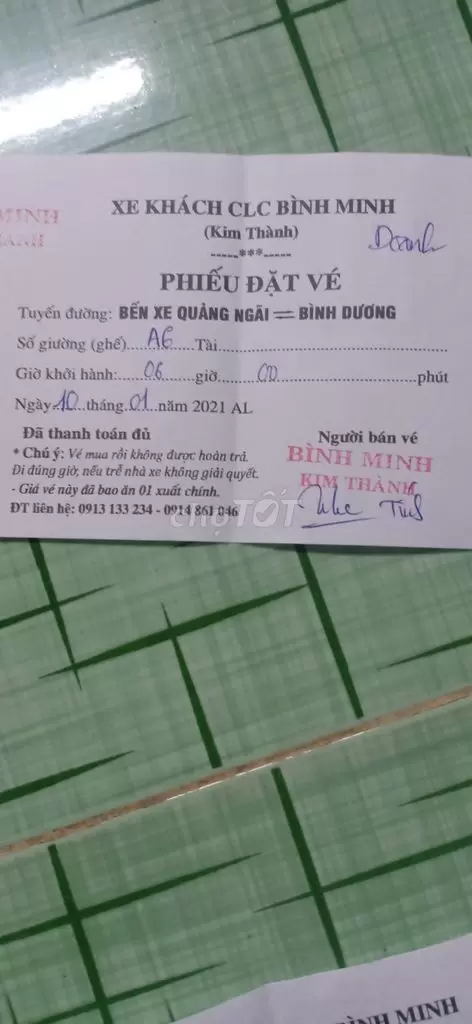 MINH
THÀNH
XE KHÁCH CLC BÌNH MINH
(Kim Thành)
-----***-----
Doanh
PHIẾU ĐẶT VÉ
Tuyến đường: BẾN XE QUẢNG NGÃI = BÌNH DƯƠNG
Số giường (ghế)....A6....Tài..........
Giờ khởi hành:....06....giờ....00....phút
Ngày..10..tháng..01..năm 2021 AL
Đã thanh toán đủ
Người bán vé
* Chú ý: Vé mua rồi không được hoàn trả.
Đi đúng giờ, nếu trễ nhà xe không giải quyết.
- Giá vé này đã bao ăn 01 xuất chính.
ĐT liên hệ: 0913 133 234 - 0914 861 046
BÌNH MINH
KIM THÀNH
chợTỐT
BÌNH MINH